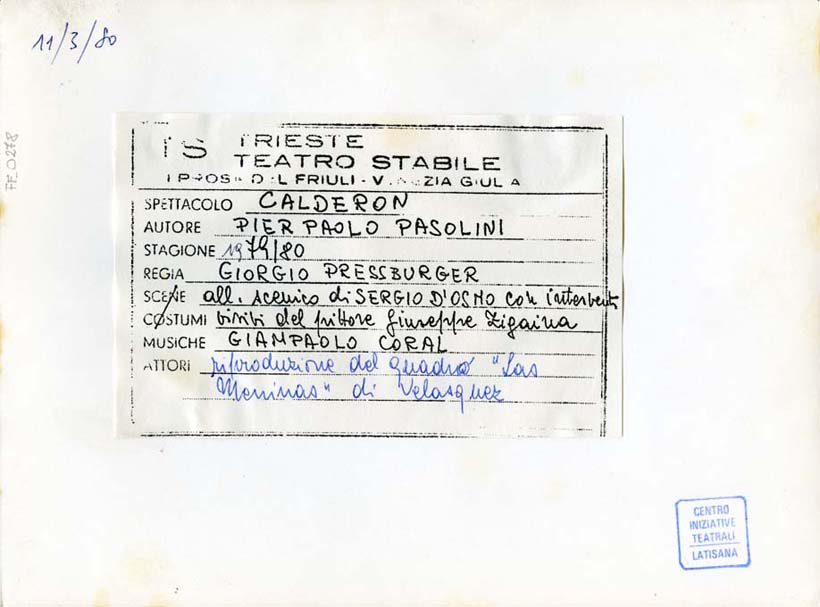 11/3/80
FF_0278
TS TRIESTE
TEATRO STABILE
FRIULI - V
SPETTACOLO CALDERON
AUTORE PIER PAOLO PASOLINI
STAGIONE 1979/80
REGIA GIORGIO PRESSBURGER
SCENE all. scenico di SERGIO D'OSMO con interventi
COSTUMI visivi del pittore Giuseppe Zigaina
MUSICHE GIAMPAOLO CORAL
ATTORI riproduzione del quadro "Las
Meninas" di Velasquez
CENTRO
INIZIATIVE
TEATRALI
LATISANA